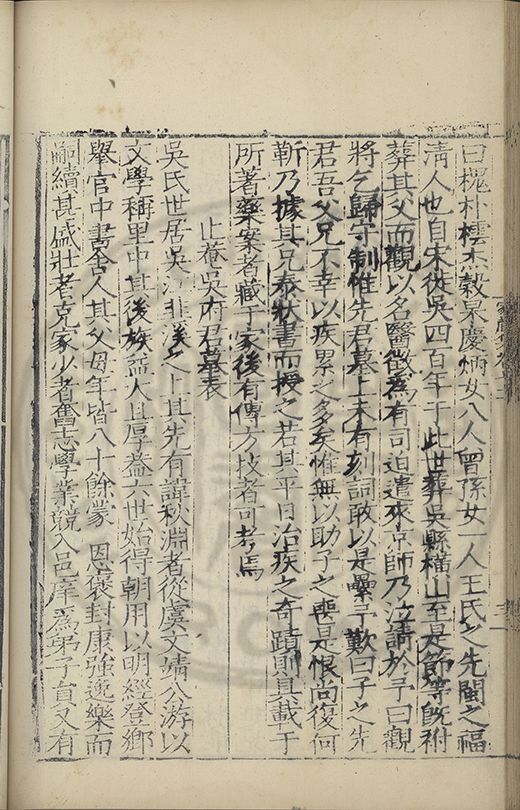 曰槐朴樗杰穀杲慶炳女八人曾孫女一人王氏之先閩之福
清人也自宋從吳四百年于此世葬吳縣橫山至是節等旣祔
葬其父而觀以名醫徵為有司迫遣來京師乃泣請於予曰觀
將乞歸守制惟先君墓上未有刻詞敢以是纍予歎曰子之先
君吾父兄不幸以疾累之多矣惟無以助子之喪是恨尚復何
靳乃據其兄泰狀書而授之若其平日治疾之奇蹟則具載于
所著藥案者藏于家後有傳方技者可考焉
止菴吳府君墓表
吳氏世居吳江韭溪之上其先有諱秋淵者從虞文靖公游以
文學稱里中其後族益大且厚葢六世始得朝用以明經登鄉
舉官中書舍人其父母年皆八十餘蒙 恩褒封康強逸樂而
嗣續甚盛壯者克家少者奮志學業競入邑庠為弟子員又有